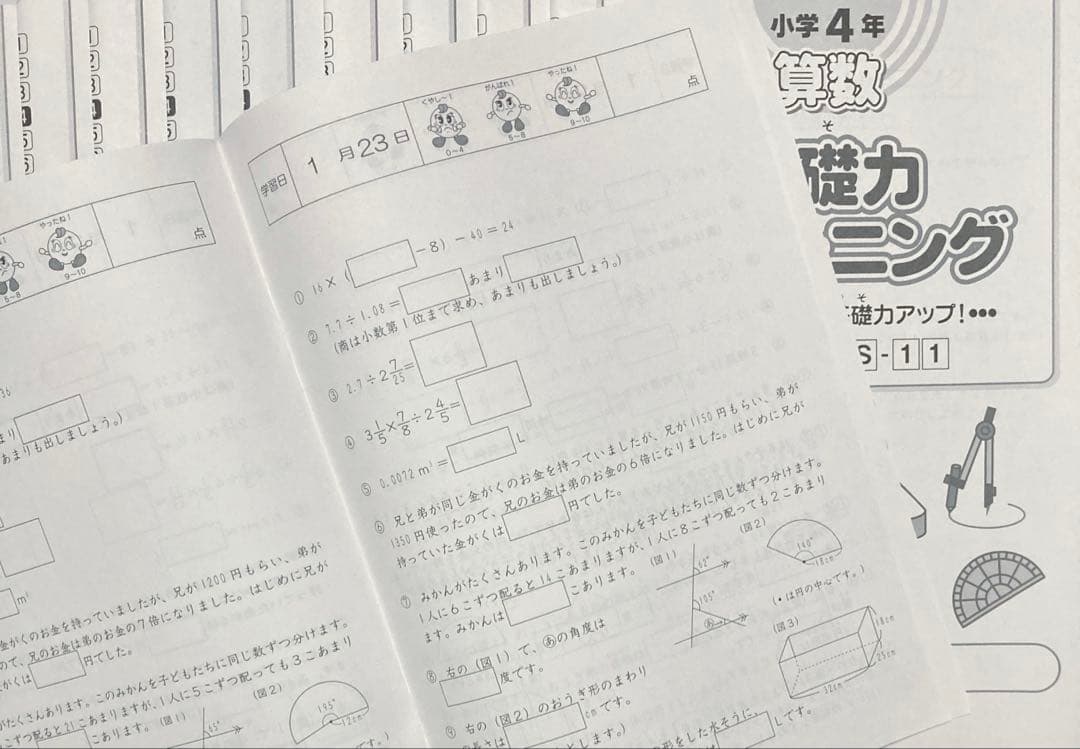 1
2
3
4
5
6
やったね!
5~8
9~10
点
36
あまり
あまりも出しましょう。)
m³
金がくのお金を持っていましたが、兄が1200円もらい、弟が
ので、兄のお金は弟のお金の7倍になりました。はじめに兄が
がくは 円でした。
がたくさんあります。このみかんを子どもたちに同じ数ずつ分けます。
配ると21こあまりますが、1人に5こずつ配っても3こあまり
こあります。 (図1)
(図2)
65°
195°
12cm
学習日 1月23日
くやし~! がんばれ! やったね!
0~4 5~8 9~10
点
① 16×( -8)-40=24
② 7.7÷1.08= あまり
(商は小数第1位まで求め、あまりも出しましょう。)
③ 2.7÷2 7/25=
④ 3 1/5×7/8÷2 4/5=
⑤ 0.0072m³= L
⑥ 兄と弟が同じ金がくのお金を持っていましたが、兄が1150円もらい、弟が
1350円使ったので、兄のお金は弟のお金の6倍になりました。はじめに兄が
持っていた金がくは 円でした。
⑦ みかんがたくさんあります。このみかんを子どもたちに同じ数ずつ分けます。
1人に6こずつ配ると14こあまりますが、1人に8こずつ配っても2こあまり
ます。みかんは こあります。
(図1)
62°
105°
あ
(図2)
140°
18cm
(・は円の中心です。)
⑧ 右の(図1)で、あの角度は
度です。
(図3)
18cm
25cm
32cm
⑨ 右の(図2)のおうぎ形のまわり
の長さは cmです。
形をした水そうに、
Lです。
小学4年
算数
そ
礎力
ーニング
そ
礎力アップ!•••
S-11